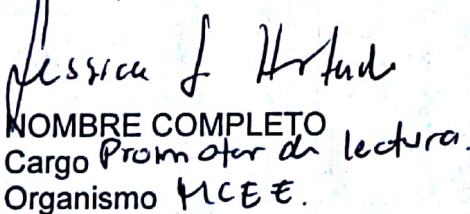 Jessica L Hurtado
NOMBRE COMPLETO
Cargo Promotor de lectura.
Organismo MCEE.